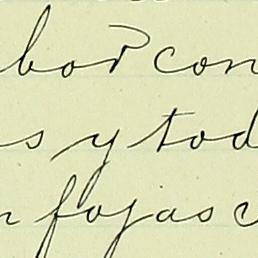 bor con
s y tod
n fojas c